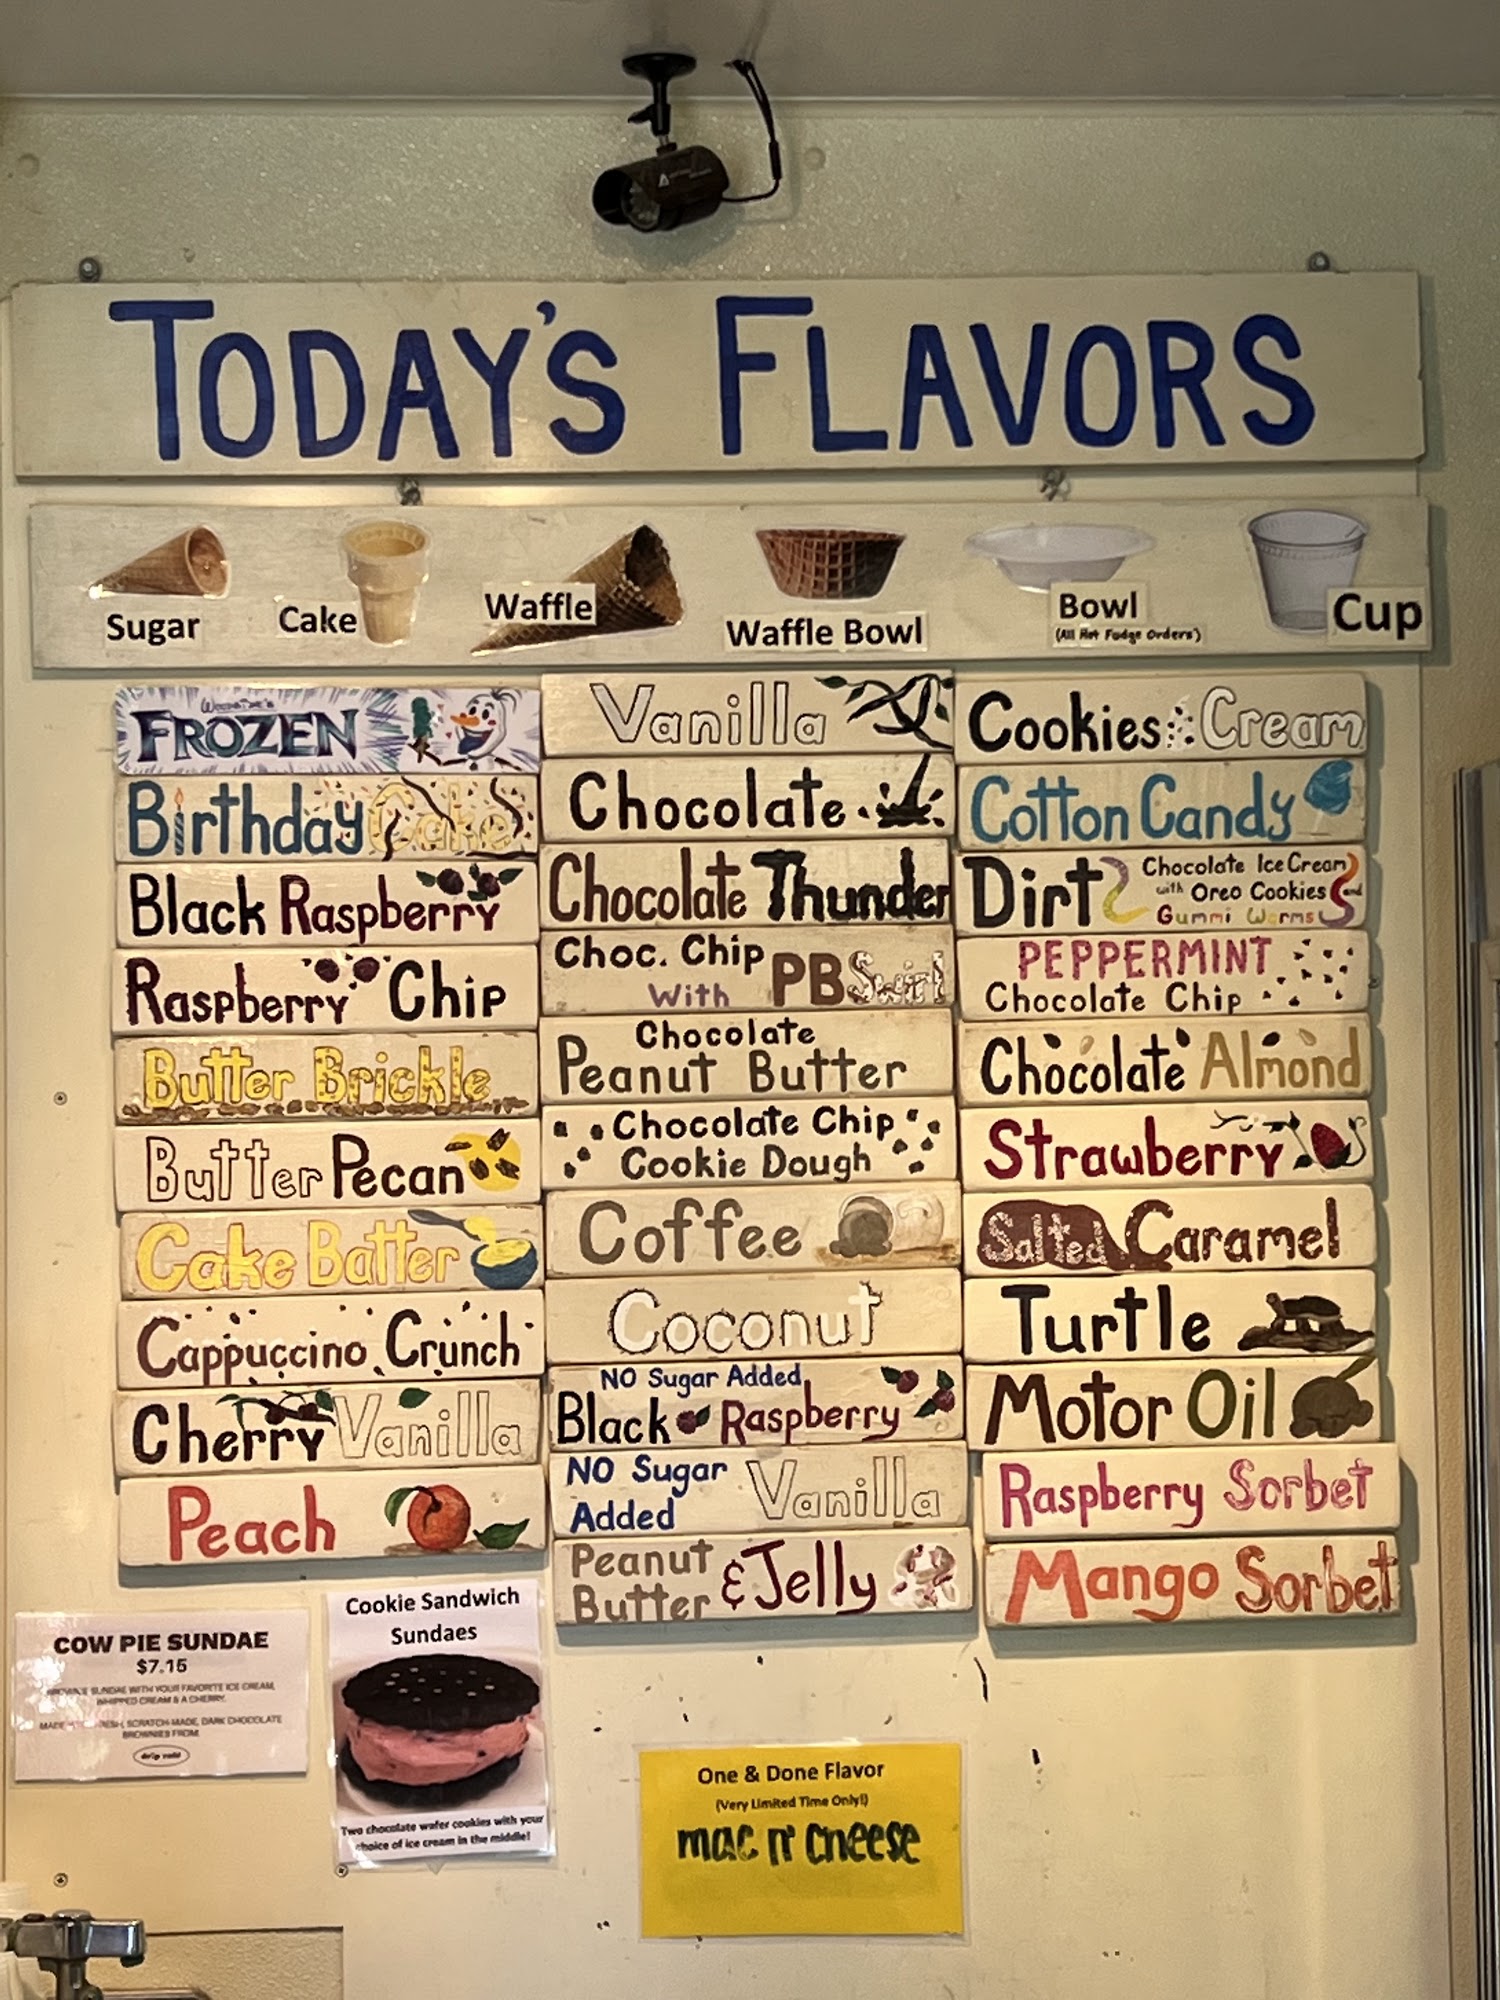 TODAY'S FLAVORS
Sugar
Cake
Waffle
Waffle Bowl
Bowl
(All Hot Fudge Orders)
Cup
FROZEN
Birthday Cake
Black Raspberry
Raspberry Chip
Butter Brickle
Butter Pecan
Cake Batter
Cappuccino Crunch
Cherry Vanilla
Peach
Vanilla
Chocolate
Chocolate Thunder
Choc. Chip
With PB Swirl
Chocolate
Peanut Butter
Chocolate Chip
Cookie Dough
Coffee
Coconut
NO Sugar Added
Black Raspberry
NO Sugar
Added Vanilla
Peanut
Butter & Jelly
Cookies Cream
Cotton Candy
Dirt
Chocolate Ice Cream
with Oreo Cookies and
Gummi Worms
PEPPERMINT
Chocolate Chip
Chocolate Almond
Strawberry
Salted Caramel
Turtle
Motor Oil
Raspberry Sorbet
Mango Sorbet
COW PIE SUNDAE
$7.15
SUNDAE WITH YOUR FAVORITE ICE CREAM,
WHIPPED CREAM & A CHERRY.
MADE SCRATCH-MADE, DARK CHOCOLATE
BROWNIES FROM
Cookie Sandwich
Sundaes
Two chocolate wafer cookies with your
choice of ice cream in the middle!
One & Done Flavor
(Very Limited Time Only!)
mac n' cheese